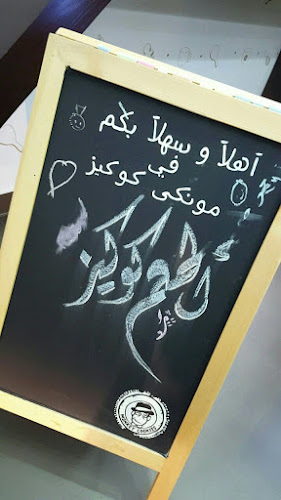 أهلاً و سهلاً بكم
في
مونكي كوكيز
ألطعم كوكيز